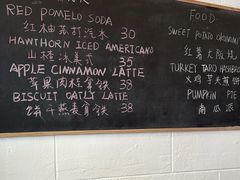 RED POMELO SODA
红柚苏打汽水 30
HAWTHORN ICED AMERICANO
山楂冰美式 35
APPLE CINNAMON LATTE
苹果肉桂拿铁 38
BISCUIT OATLY LATTE
饼干燕麦拿铁 38
FOOD
SWEET POTATO OKONOMI
红薯大阪烧
TURKEY TARO HASHBRO
火鸡芋头薯饼
PUMPKIN PIE
南瓜派